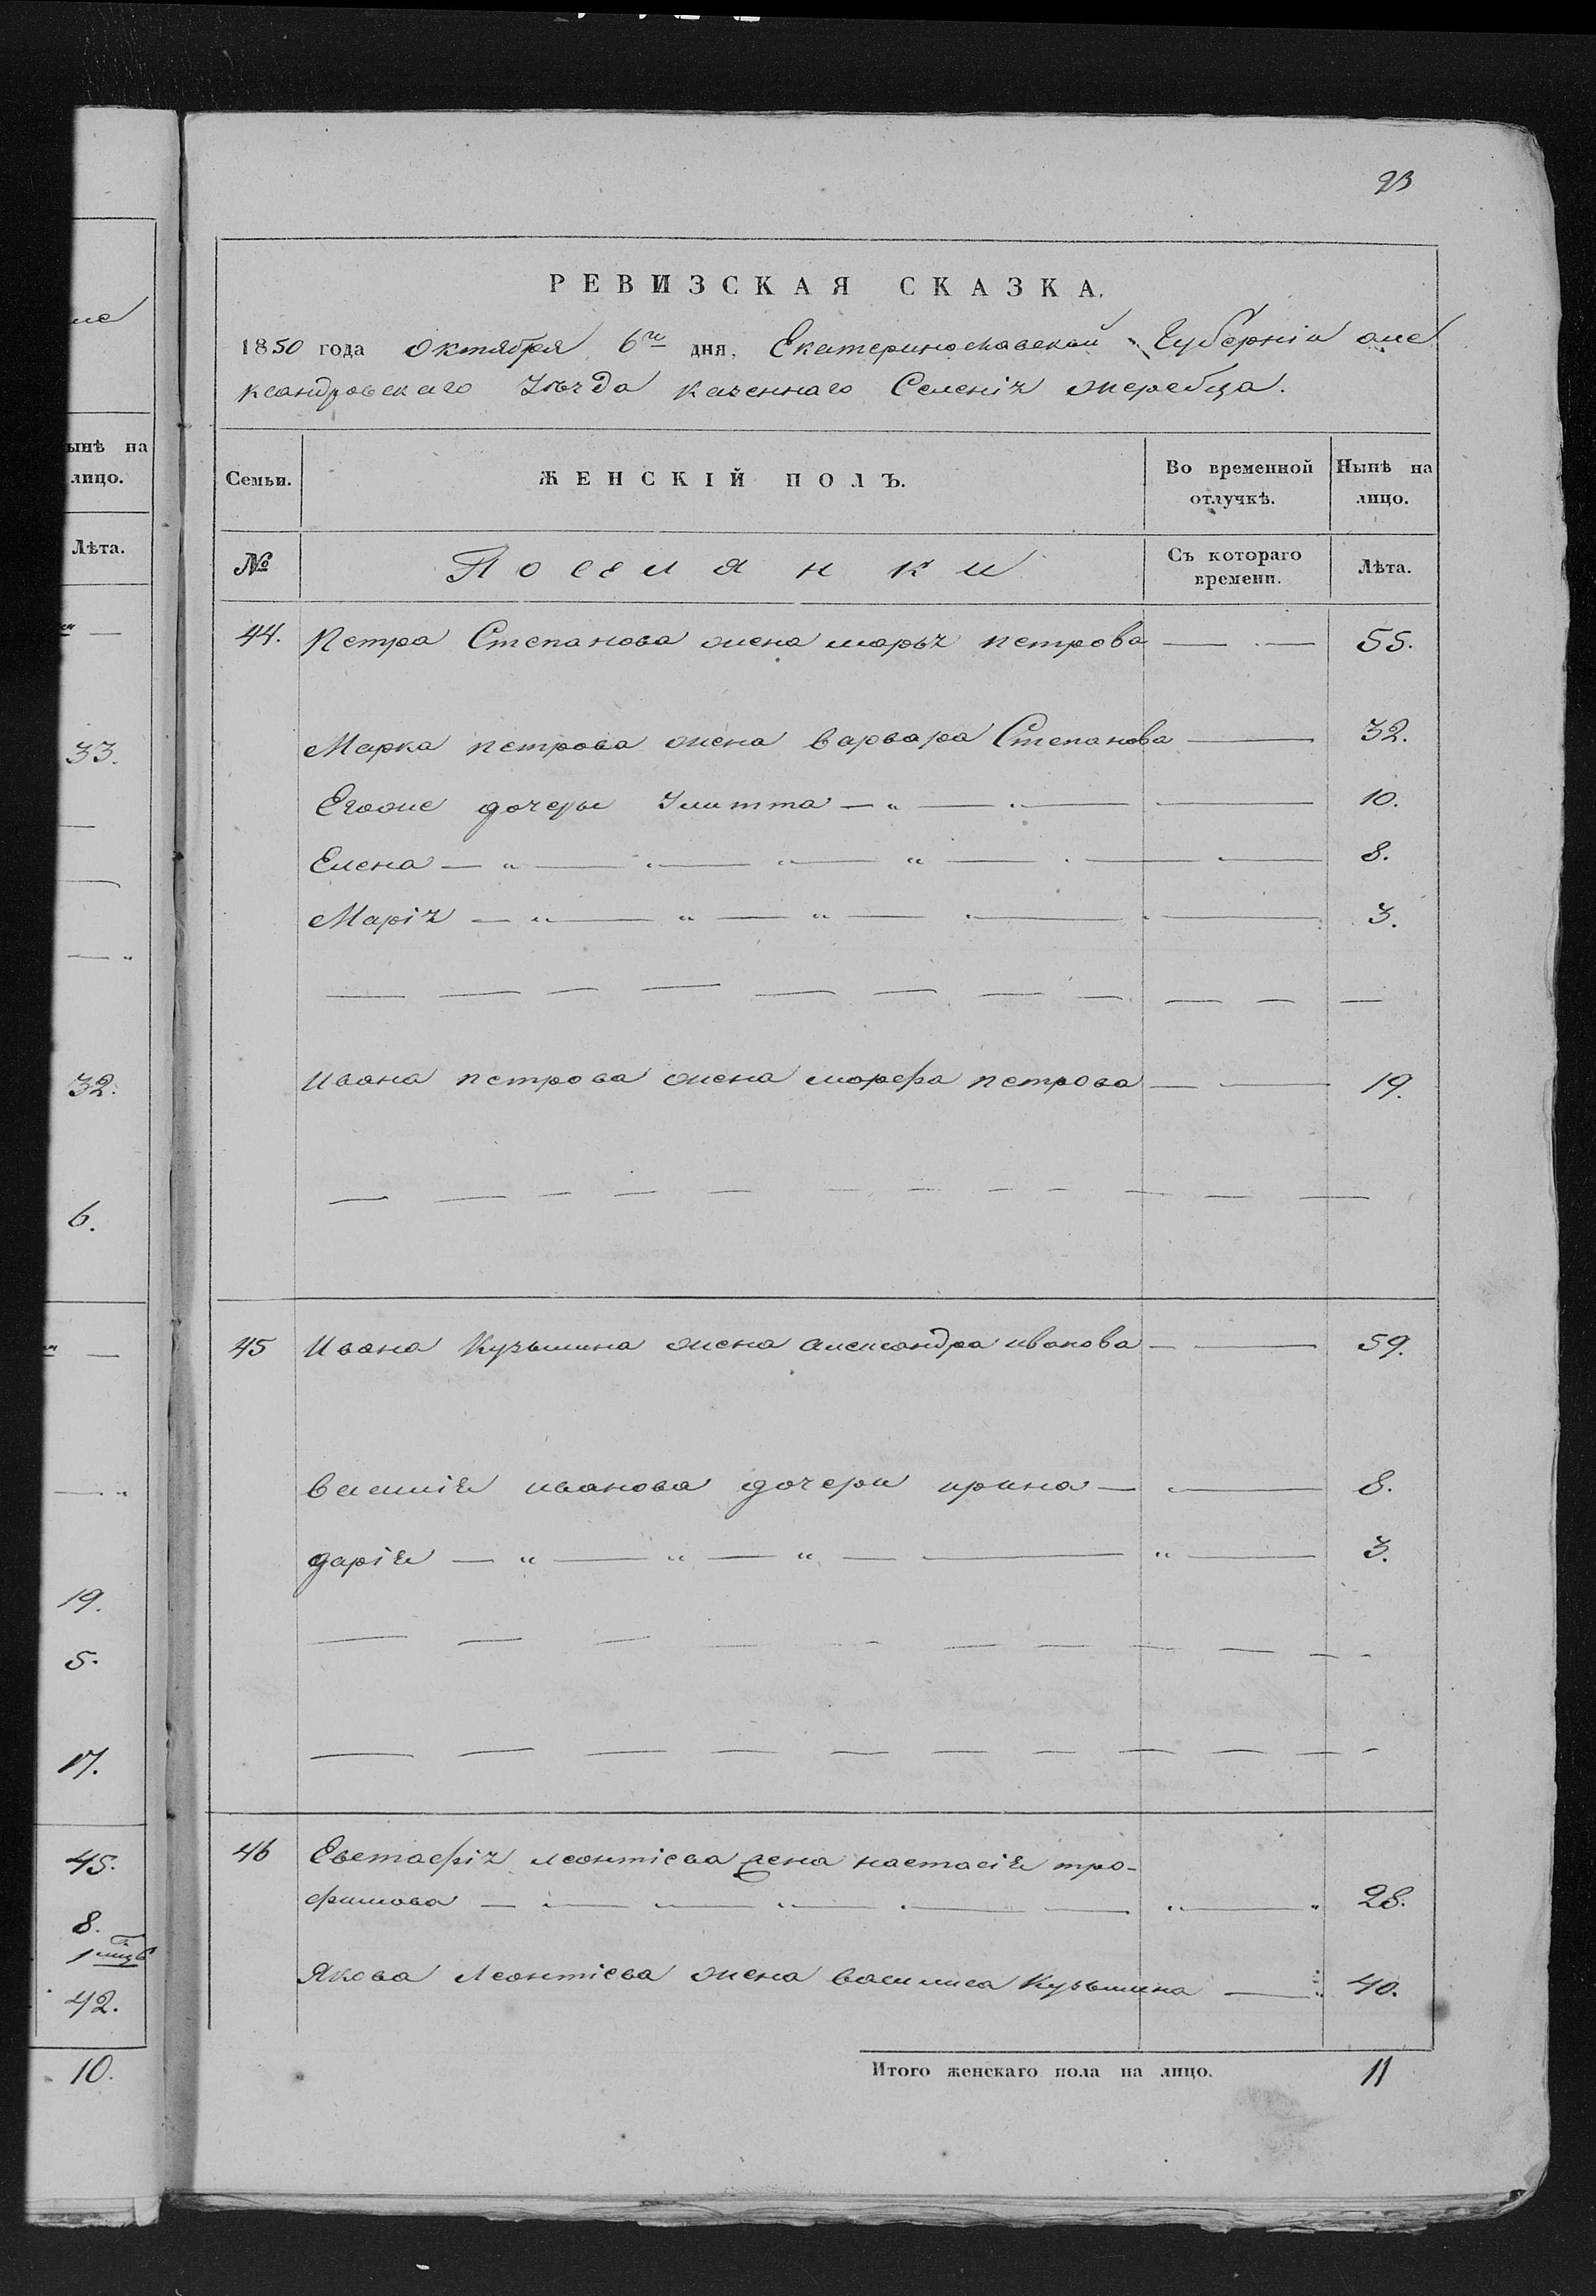 23
РЕВИЗСКАЯ СКАЗКА.
1850 года Октября 6го дня, Екатеринославской Губерніи але
ксандровскаго Уѣзда казеннаго Селенія жеребца.
Семьи. ЖЕНСКІЙ ПОЛЪ. Во временной отлучкѣ. Нынѣ на лицо.
№ Поселянки Съ котораго времени. Лѣта.
44. Петра Степанова жена марья петрова 55.
Марка петрова жена варвара Степанова 32.
Егоже дочеры Улитта 10.
Елена 8.
Марія 3.
Ивана петрова жена марфа петрова 19.
45 Ивана Кузьмина жена александра иванова 59.
василія иванова дочери ирина 8.
дарія 3.
46 Евстафія леонтіева жена настасія тро-
фимова 28.
Якова Леонтіева жена василиса Кузьмина 40.
Итого женскаго пола на лицо. 11
ынѣ на
лицо.
Лѣта.
33.
32.
6.
19.
5.
17.
45.
8.
42.
10.